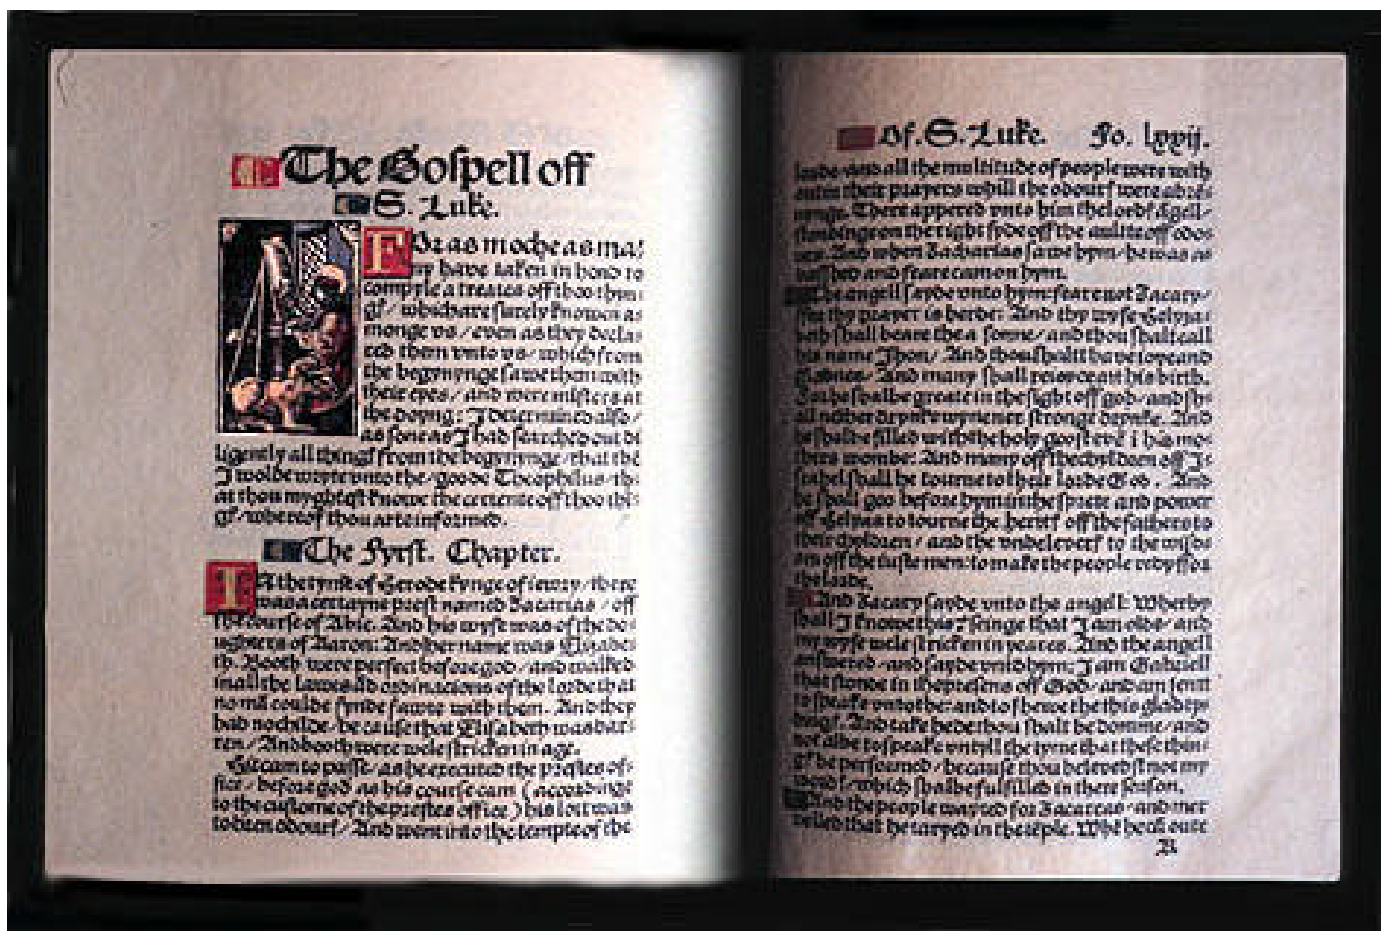 The Gospell off
S. Luke.
For as moche as ma/
ny have taken in hond to
compyle a treates off thoo thin
gs/ which are surely knowen a=
monge vs/ even as they decla=
red them vnto vs/ which from
the begynynge sawe them with
their eyes/ and were misters at
the doyng: I determined also/
as sone as I had searched out di
ligently all things from the begynynge/ that thē
I wolde wryte vnto the/ goode Theophilus/
at thou myghtest knowe the certente off thoo thi
gs/ whereof thou arte informed.
The Fyrst. Chapter.
In the tyme of Herode kynge of iewry/ there
was a certayne prest named Zacarias/ off
the course of Abie. And his wyfe was of the do=
ughters of Aaron: And her name was Elizabe=
th. Booth were perfect before god/ and walked
in all the lawes ād ordinacions of the lorde that
no mā coulde fynde fawte with them. And they
had no childe/ be cause that Elisabeth was bar=
ren/ And booth were wele stricken in age.
Hit cam to passe/ as he executed the prestes of=
fice/ before god as his course cam (accordinge
to the custome of the prestes office) his lott was
to bren odours/ And went into the temple of the
Of. S. Luke. Fo. lxxij.
lorde/ and all the multitude of people were with
out in their prayers whill the odours were abren=
nynge. There appered vnto him the lords āgell/
stondinge on the right syde off the aultre off odo=
urs. And when Zacharias sawe hym/ he was a=
basshed and feare cam on hym.
The angell sayde vnto hym: feare not Zacary/
for thy prayer is herde: And thy wyfe Helyza=
beth shall beare the a sonne/ and thou shalt call
his name Jhon/ And thou shallt have ioye and
gladnes. And many shall reioyce att his birth.
For he shalbe greate in the sight off god/ and sh=
all nether drynke wyne ner stronge drynke. And
he shalbe filled with the holy goost evē i his mo=
thers wombe: And many off the chyldren off Is
rahel shall he tourne to their lorde God. And
he shall goo before hym in the sprete and power
off Helyas to tourne the herts off the fathers to
their chyldren/ and the vnbelevers to the wysd=
om off the iuste men: to make the people redy ffor
the lorde.
And Zacary sayde vnto the angell: Wherby
shall I knowe this? seinge that I am olde/ and
my wyfe wele stricken in yeares. And the angell
answered/ and sayde vnto hym: I am Gabriell
that stonde in the presens off God/ and am sent
to speake vnto the: and to shewe the this glad ty=
dings. And take hede thou shalt be domme/ and
not able to speake vntyll the tyme that these thin=
gs be performed/ because thou belevedst not my
words/ which shalbe fulfilled in there season.
And the people wayted for Zacarias/ and mer
veiled that he taryed in the tēple. Whē he cā oute